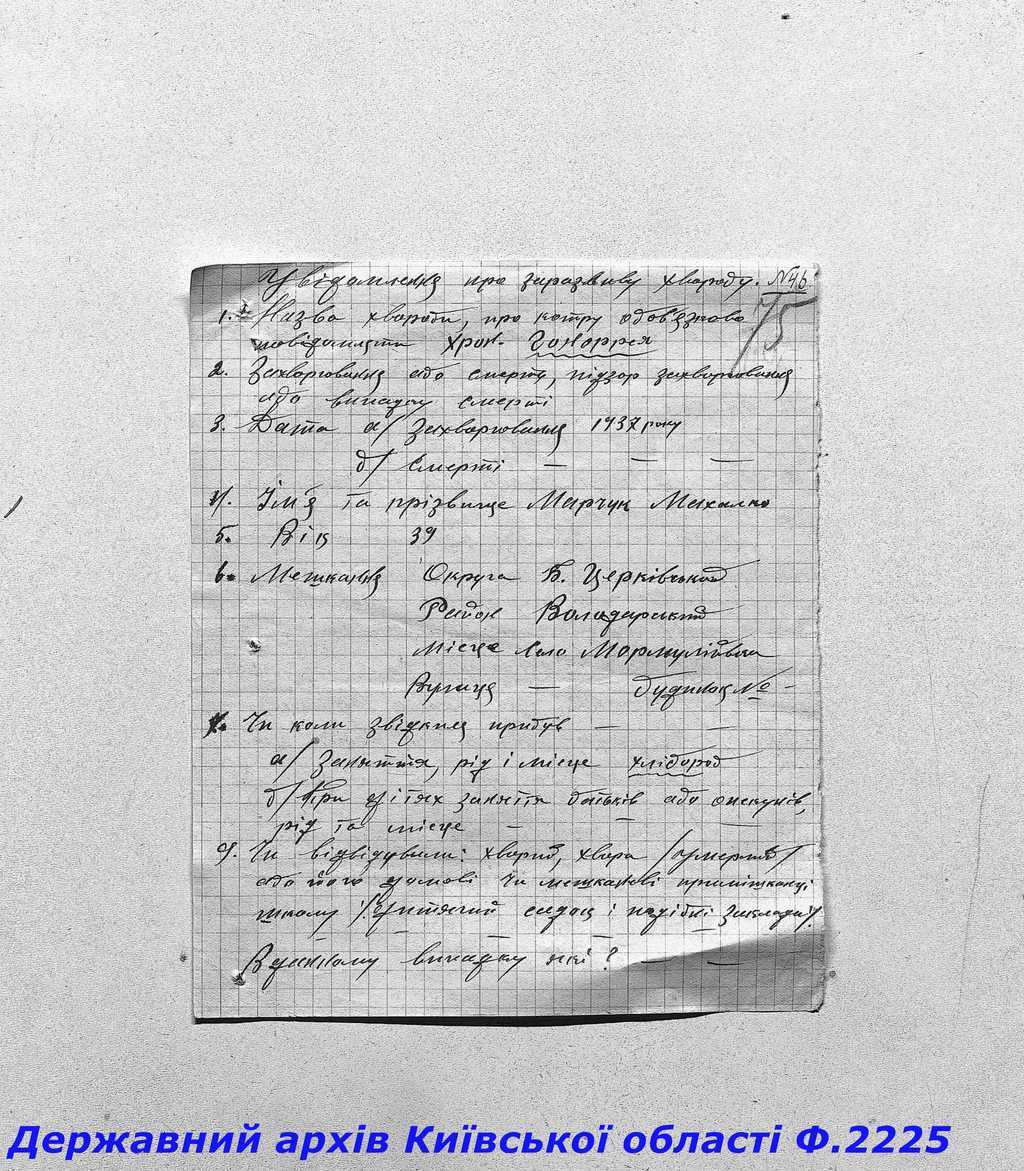 Увідомлення про заразливу хворобу. №46
75
1. Назва хвороби, про котру обов'язково
повідомляти Хрон. Гоноррея
2. Захворювання або смерть, підзор захворювання
або випадку смерті
3. Дата а/ Захворювання 1937 року
б/ Смерті — — —
4. Ім'я та прізвище Марчук Михалко
5. Вік 39
6. Мешкання Округа Б. Церківський
Район Володарський
Місце Село
Вулиця — будинок № -
7. Чи коли звідкиля прибув — —
а/ Заняття, рід і місце хлібороб
б/ При дітях заняття батьків або опекунів,
рід та місце — — —
9. Чи відвідували: хворий, хвора /умерший/
або його домові чи мешканові
школу /дитячий садок і подібні заклади/.
— — — — —
В данному випадку які? — —
Державний архів Київської області Ф.2225